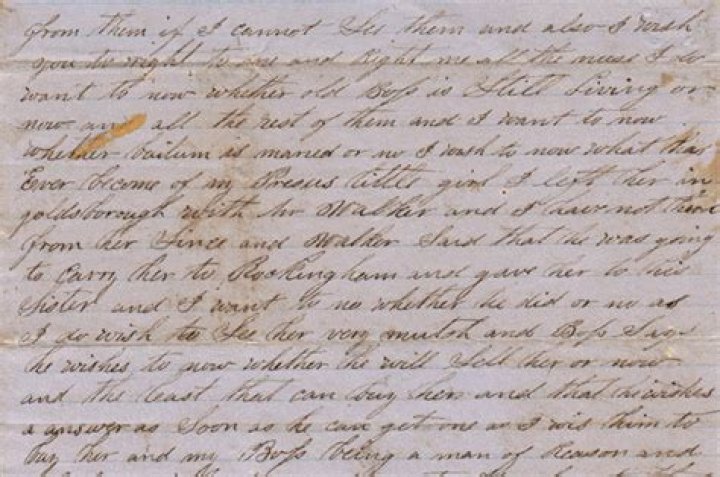 from them if I cannot See them and also I wish
you to wright to me and Right me all the nuse I do
want to now whether old Boss is Still Living or
now and all the rest of them and I want to now
whether bailum is maried or no I wish to now what has
Ever become of my Presus little girl I left her in
goldsborough with Mr Walker and I have not herd
from her Since and Walker Said that he was going
to Carry her to Rockingham and gave her to his
Sister and I want to no whether he did or no as
I do wish to See her very mutch and Boss Says
he wishes to now whether he will Sell her or now
and the least that can buy her and that he wishes
a answer as Soon as he can get one as I wis him to
buy her and my Boss being a man of Reason and